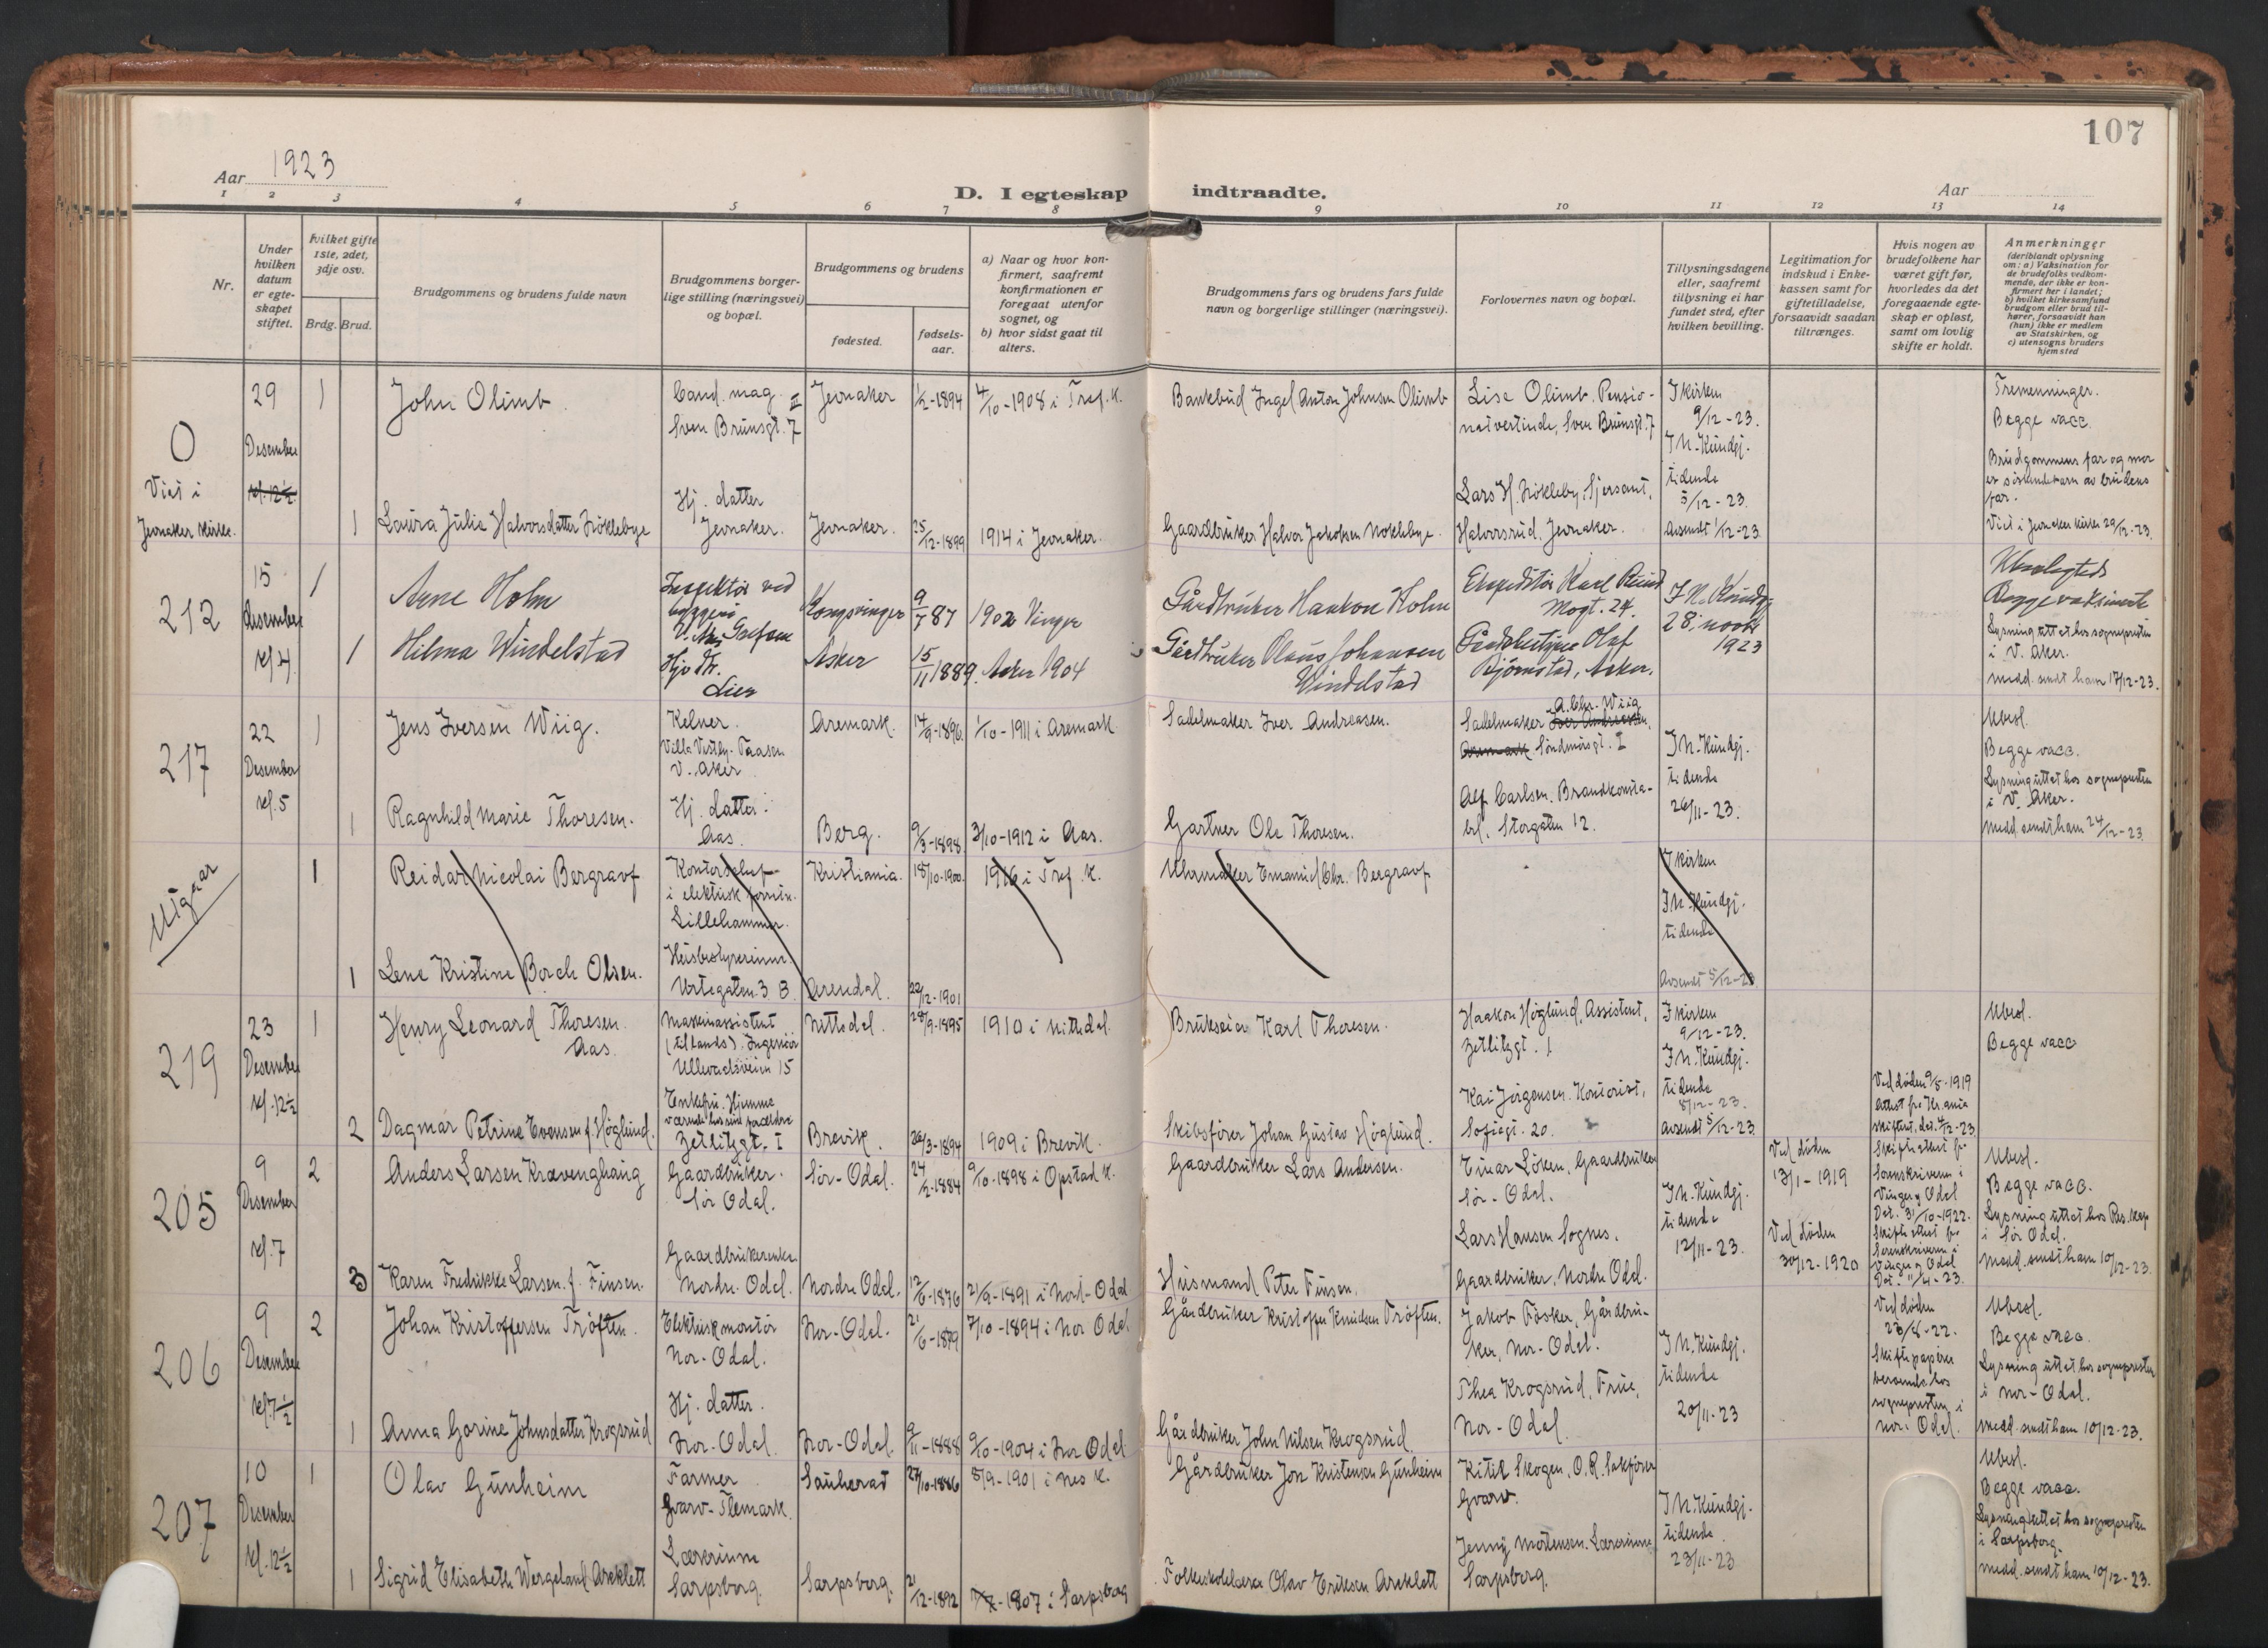 107
Aar 1923
D. I egteskap indtraadte.
Aar
1 2 3 4 5 6 7 8 9 10 11 12 13 14
Nr.
Under hvilken datum er egteskapet stiftet.
hvilket gifte 1ste, 2det, 3dje osv.
Brdg. Brud.
Brudgommens og brudens fulde navn
Brudgommens borgerlige stilling (næringsvei) og bopæl.
Brudgommens og brudens
fødested.
fødselsaar.
a) Naar og hvor konfirmert, saafremt konfirmationen er foregaat utenfor sognet, og
b) hvor sidst gaat til alters.
Brudgommens fars og brudens fars fulde navn og borgerlige stillinger (næringsvei).
Forlovernes navn og bopæl.
Tillysningsdagene eller, saafremt tillysning ei har fundet sted, efter hvilken bevilling.
Legitimation for indskud i Enkekassen samt for giftetilladelse, forsaavidt saadan tiltrænges.
Hvis nogen av brudefolkene har været gift før, hvorledes da det foregaaende egteskap er opløst, samt om lovlig skifte er holdt.
Anmerkninger (deriblandt oplysning om: a) Vaksination for de brudefolks vedkommende, der ikke er konfirmert her i landet; b) hvilket kirkesamfund brudgom eller brud tilhører, forsaavidt han (hun) ikke er medlem av Statskirken, og c) utensogns bruders hjemsted
0
Viet i
Jevnaker kirke.
29
Desember
kl. 12½
1
John Olimb
Cand. mag.
Sven Brunsgt. 7 III
Jevnaker
1/2-1894
4/10-1908 i Tref. K.
Bankbud Ingel Anton Johnsen Olimb
Lise Olimb, Pensionatvertinde, Sven Brunsgt. 7
I kirken
9/12-23.
I N. Kundgj.
tidende
5/12-23.
Avsendt 1/12-23.
Tremenninger.
Begge vacc.
Brudgommens far og mor
er søskendebarn av brudens
far.
Viet i Jevnaker kirke 29/12-23.
1
Laura Julie Halvorsdatter Nøklebye
Hj. datter
Jevnaker.
Jevnaker.
25/12-1899
1914 i Jevnaker.
Gaardbruker Halvor Jakobsen Nøklebye.
Lars H. Nøkleby, Sjersant,
Halvorsrud, Jevnaker.
212
15
desember
kl 4
1
Arne Holm
Inspektør ved
Kongsvinger
9/7 87
1902 Vinger
Gårdbruker Haakon Holm
Ekspeditør Karl
Mogt. 24.
I N. Kundgj
28. novbr
1923
Ubeslegtede
Begge vaksinerte
Lysning uttat hos sogneprsten
i V. Aker.
Medd. sendt ham 17/12-23.
1
Hilma Windelstad
Hj. dtr.
Lier
Asker
15/11 1889
Asker 1904
Gårdbruker Olaus Johansen
Windelstad
Olaf
Bjørnstad, Asker.
217
22
Desember
kl. 5
1
Jens Iversen Wiig.
Kelner.
Villa Vestby. Taasen
V. Aker
Aremark.
14/9-1896.
1/10-1911 i Aremark
Sadelmaker Iver Andreasen.
Sadelmaker A. Chr. Wiig
Iver Andreasen,
Aremark Søndmørsgt. I
I N. Kundgj.
tidende
26/11-23.
Ubesl.
Begge vacc.
Lysning uttat hos sognepresten
i V. Aker.
Medd. sendt ham 24/12-23
1
Ragnhild Marie Thoresen.
Hj. datter.
Aas.
Berg.
9/3-1898
3/10-1912 i Aas.
Gartner Ole Thoresen.
Alf Carlsen. Brandkonstabel. Storgaten 12.
Utgaar
1
Reidar Nicolai Bergravf
Kontorchef
i elektrisk forretn.
Lillehammer
Kristiania.
18/10-1900.
1916 i Tref. K.
Uhrmaker Emanuel Chr. Bergravf
I kirken
I N. Kundgj.
tidende
Avsendt 5/12-23
1
Lene Kristine Borch Olsen.
Husbestyrerinne
Urtegaten 3 B.
Arendal.
22/12-1901
219
23
Desember
kl. 12½
1
Henry Leonard Thoresen.
Aas.
Maskinassistent
(tillands). Ingeniør
Ullevaalsveien 15
Nittedal.
28/9-1895
1910 i Nittedal
Brukseier Karl Thoresen.
Haakon Høglund, Assistent,
Zetlitzgt. 1
I kirken
9/12-23.
I N. Kundgj.
tidende
8/12-23.
Avsendt 5/12-23
Ubesl.
Begge vacc
2
Dagmar Petrine Evensen f. Høglund.
Enkefru. Hjemme
værende hos sine forældre
Zetlitzgt. I
Brevik.
26/3-1894
1909 i Brevik.
Skibsfører Johan Gustav Høglund.
Kai Jørgensen. Kontorist,
Sofiegt. 20.
Ved døden 9/5-1919
Attest fra Kr.ania
skifteret. dat. 4/12-23
205
9
Desember
kl. 7
2
Anders Larsen Krævenghaug
Gaardbruker.
Sør Odal.
Sør-Odal.
24/2-1884
9/10-1898 i Opstad K.
Gaardbruker Lars Andersen.
Einar Løken, Gaardbruker
Sør-Odal.
I N. Kundgj.
tidende
12/11-23.
Ved døden
13/1-1919
Skifteattest fr
Sorenskriveren i
Vinger og Odal
Dat. 31/10-1922.
Ubesl.
Begge vacc.
Lysning uttat hos Res. kap
i Sør Odal.
Medd. sendt ham 10/12-23.
3
Karen Fredrikke Larsen. f. Finsen.
Gaardbrukerenke
Nordre Odal.
Nordre Odal.
12/6-1876
21/9-1891 i Nord-Odal
Husmand Peter Finsen.
Lars Hansen Sognes.
Gaardbruker, Nordre Odal.
Ved døden
30/12-1920
Skifteattest fra
Sorenskriveren i
Vinger og Odal
Dat. 11/4-23.
206
9
Desember
kl 7½
2
Johan Kristoffersen Trøften.
Elektrisk montør
Nor-Odal.
Nor-Odal.
21/6-1879
7/10-1894 i Nor Odal.
Gårdbruker Kristoffer Knudsen Trøften.
Jakob Fosker, Gårdbruker, Nor-Odal.
I N. Kundgj.
tidende
20/11-23
Ved døden
23/8-22.
Skiftepapirer
beroende hos
sognepresten i
Nor-Odal.
Ubesl.
Begge vacc.
Lysning uttat hos sognepresten
i Nor-Odal.
Medd. sendt ham 10/12-23.
1
Anna Gorine Johnsdatter Krogsrud
Hj. datter.
Nor-Odal.
Nor-Odal.
9/11-1888
9/10-1904 i Nor Odal
Gårdbruker John Nilsen Krogsrud.
Thea Krogsrud, Frue,
Nor-Odal.
207
10
Desember
kl. 12½
1
Olav Gunheim
Farmer
Gvarv-Tlemark.
Sauherad
27/10-1886
8/9-1901 i Nes K.
Gårdbruker Jon Kristensen Gunheim
Kitil Skogen, O.R. Sakfører
Gvarv.
I N. Kundgj.
tidende
23/11-23
Ubesl.
Begge vacc.
Lysning uttat hos sognepresten
i Sarpsborg.
Medd. sendt ham 10/12-23.
1
Sigrid Elisabeth Wergeland Areklett
Lærerinne
Sarpsborg
Sarpsborg.
21/12-1892
1907 i Sarpsborg
Folkeskolelærer Olav Eriksen Areklett
Jenny Mortensen. Lærerinne
Sarpsborg.